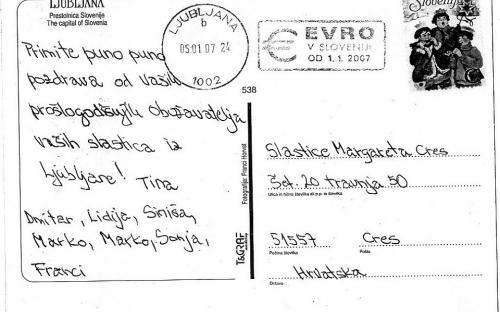 LJUBLJANA
Prestolnica Slovenije
The capital of Slovenia
Primite puno puno
pozdrava od Vaših
prošlogodišnjih obožavatelja
vaših slastica iz
Ljubljane! Tina
Dmitar, Lidija, Siniša,
Marko, Marko, Sonja,
Franci
LJUBLJANA
b
05.01.07 24
1002
EVRO
V SLOVENIJI
OD 1.1.2007
Slovenija
538
Fotografija: Franci Horvat
T&GRAF
Slastice Margareta Cres
Šet. 20 travnja 50
Ulica in hišna številka ali p.p. in številka
51557 Cres
Poštna številka Pošta
Hrvatska
Država